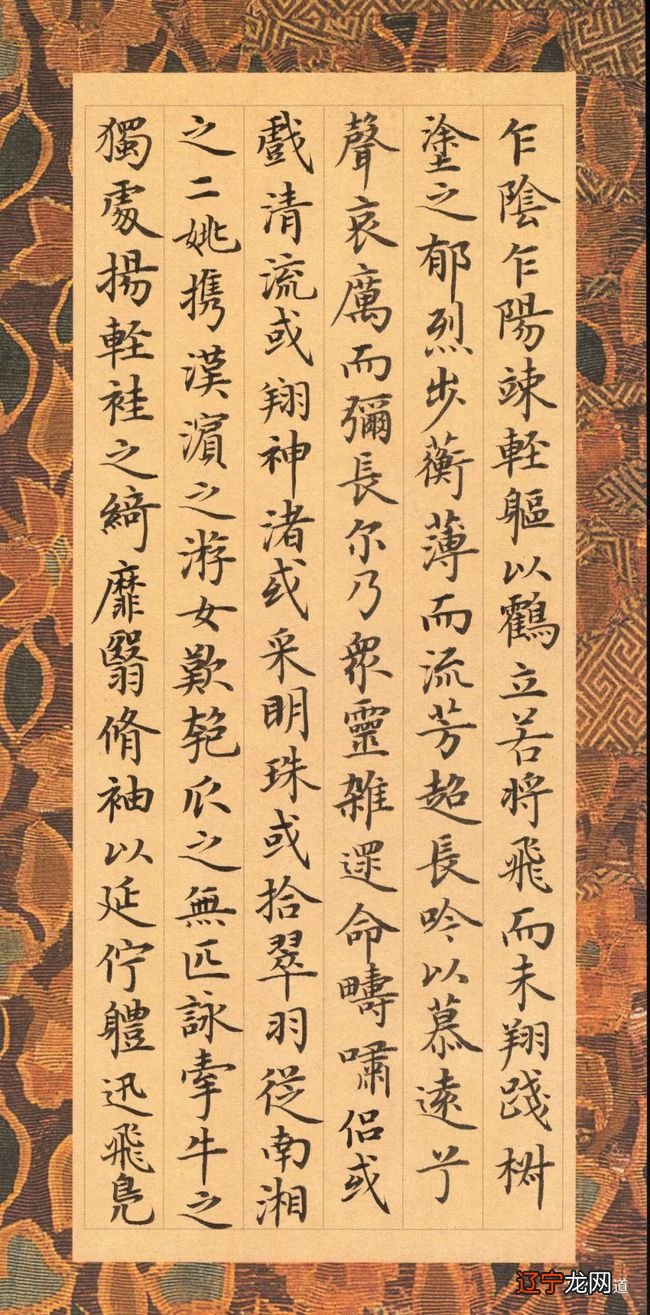 乍陰乍陽竦輕軀以鶴立若將飛而未翔踐椒
塗之郁烈步蘅薄而流芳超長吟以慕遠兮
聲哀厲而彌長尔乃眾靈雜遝命疇嘯侶或
戲清流或翔神渚或采明珠或拾翠羽從南湘
之二姚携漢濱之游女歎匏瓜之無匹詠牽牛之
獨處揚輕袿之綺靡翳脩袖以延佇體迅飛鳧
辽宁龙网道